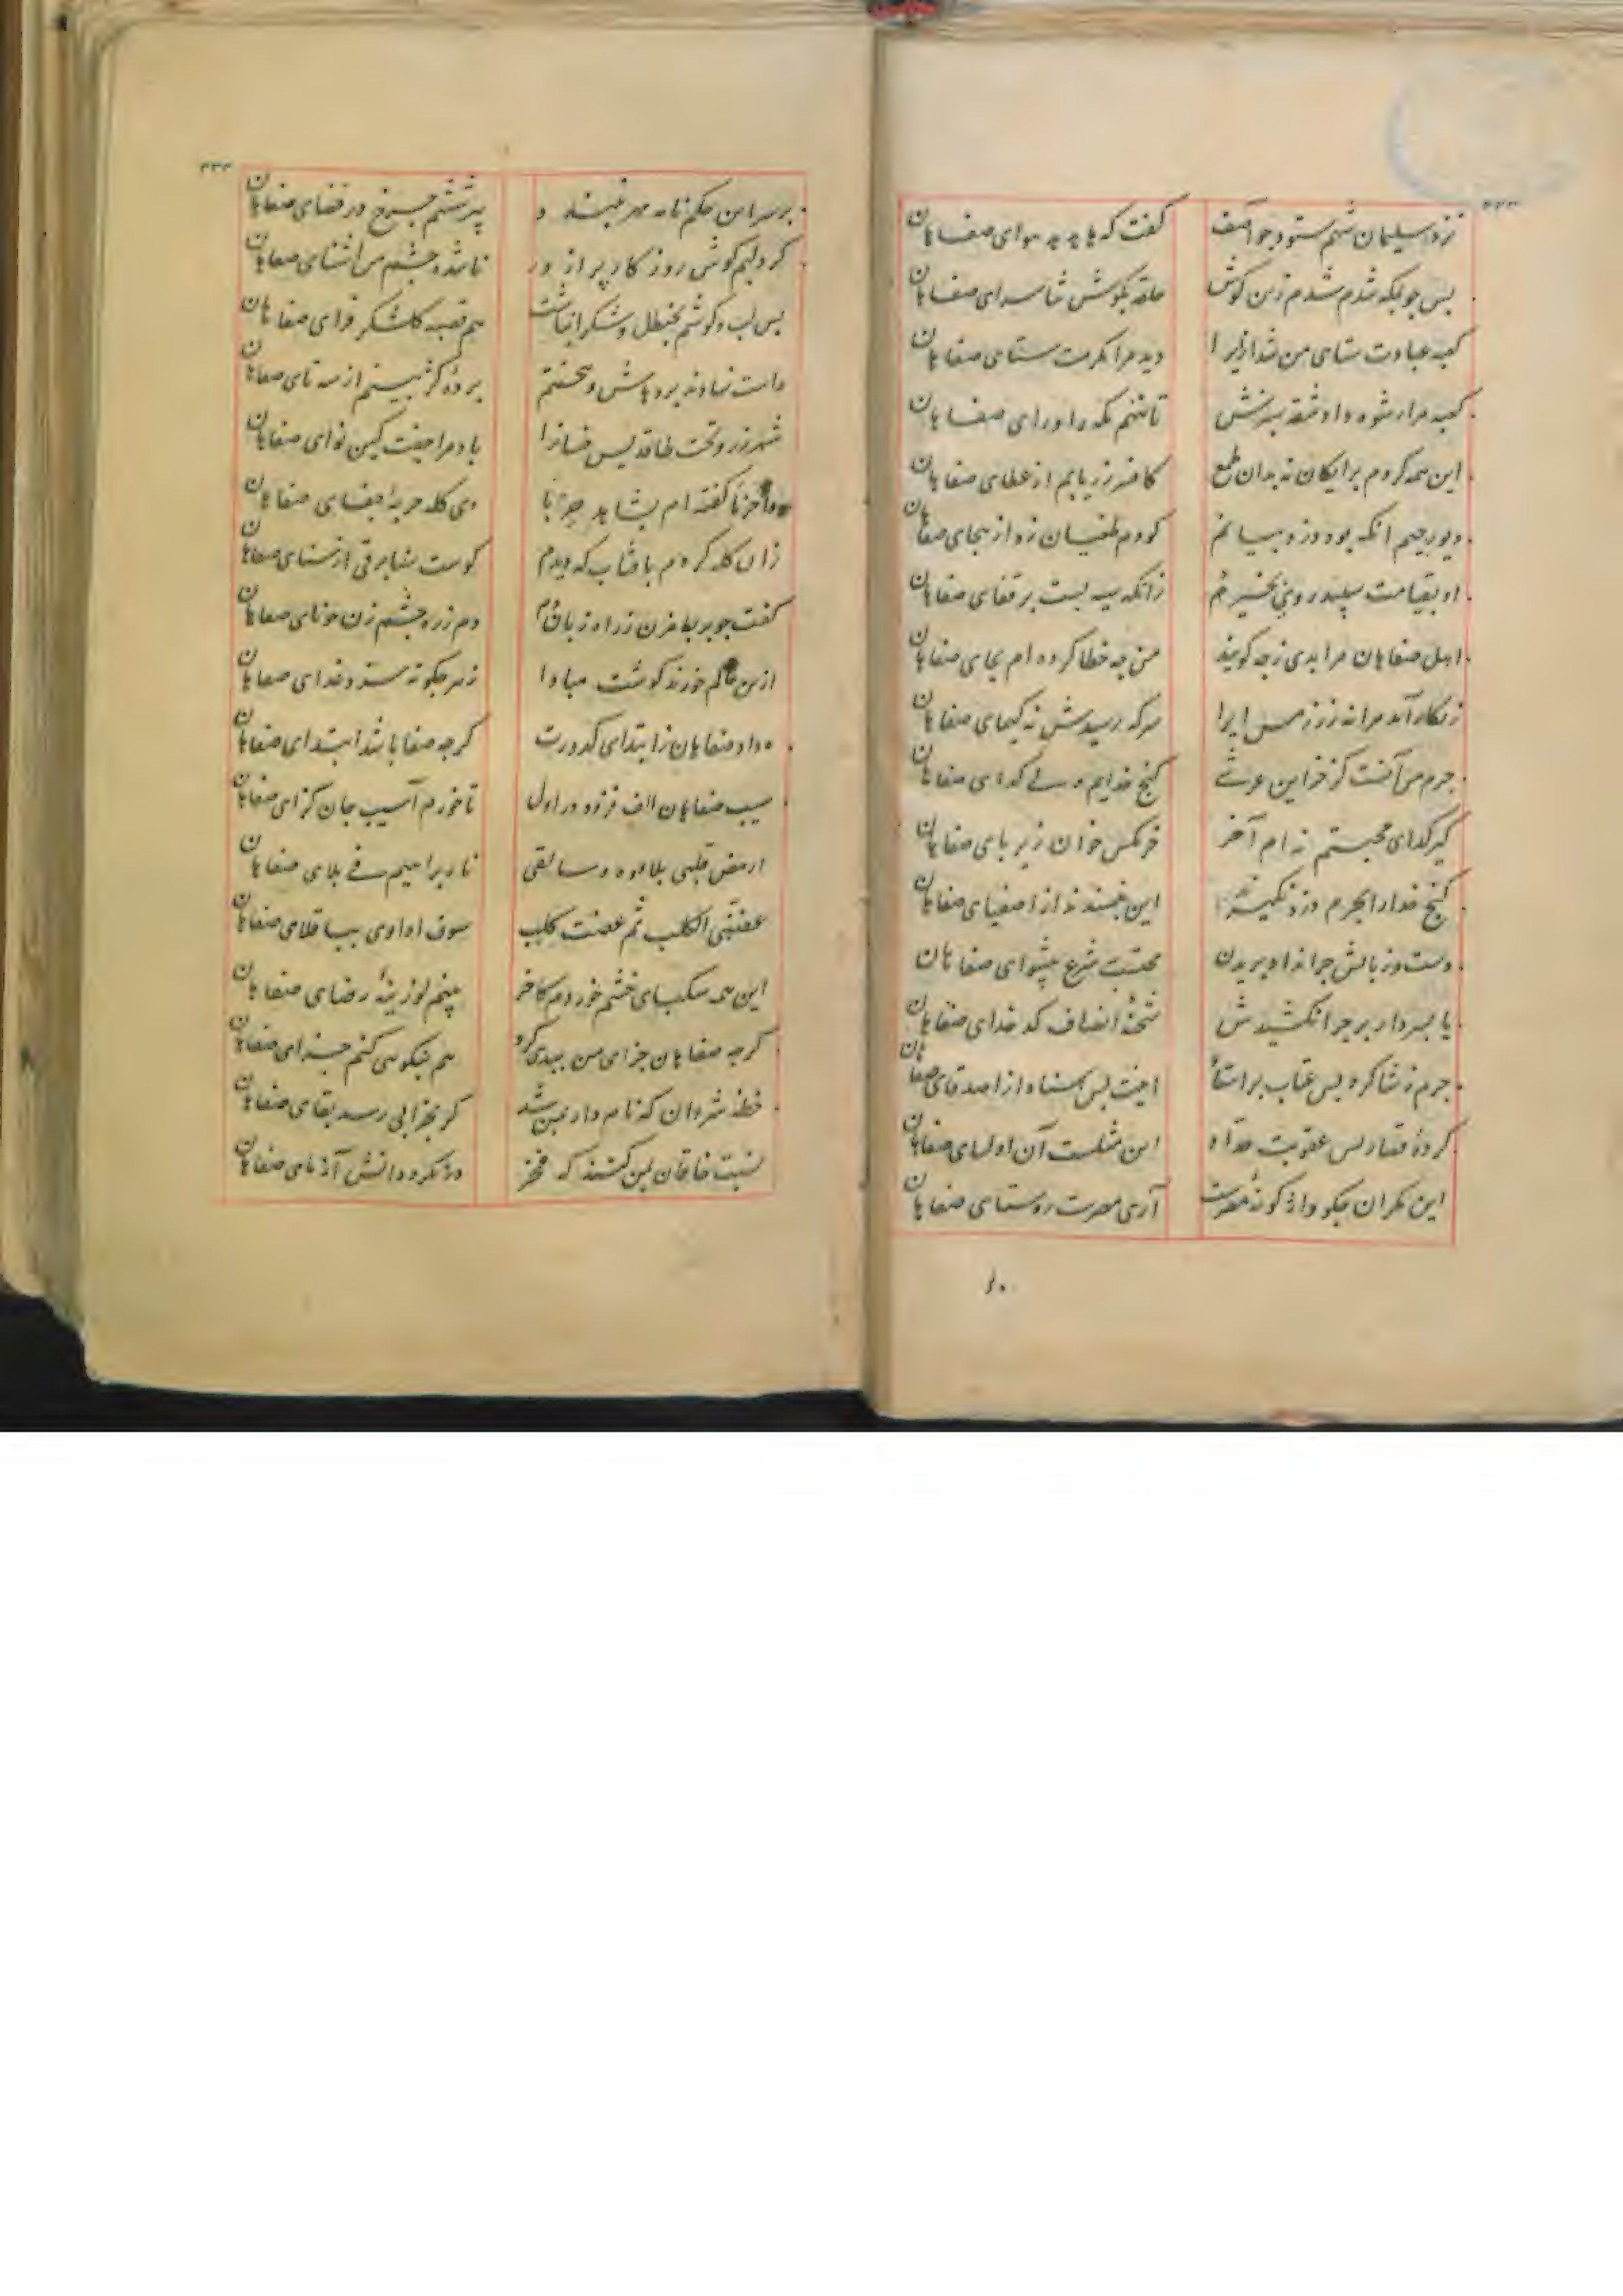 ۴۳۳
نزد سلیمان شهم ستود چو آصف گفت که ها هدهد هوای صفاهان
پس چو بمکه شدم شدم زبن گوش حلقه بگوش ثنا سرای صفاهان
کعبه عبادت ستای من شد ازیرا دید مرا مکرمت ستای صفاهان
کعبه مرا رشوه داد شقه سبزش تا ننهم مکه را ورای صفاهان
این همه کردم برایکان نه بدان طمع کافسر زر یابم از عطای صفاهان
دیو رجیم آنکه بود دزد بیانم کر دم طغیان زد از هجای صفاهان
او بقیامت سپید روی نخیزد زانکه سیه بست بر قفای صفاهان
اهل صفاهان مرا بدی ز چه کویند من چه خطا کرده ام بجای صفاهان
زنکار آمد مرا نه زر ز مس ایرا هرکه رسیدش نه کیمیای صفاهان
جرم من آنست کز خزاین عرشی گنج خدایم ولی گدای صفاهان
گیر گدای محبتم نه ام آخر خرمگس خوان زیربای صفاهان
گنج خدا را بجرم دزد نگیرند این نپسندند از اصفیای صفاهان
دست و زبانش چرا نداد بریدن محتسب شرع پیشوای صفاهان
یا بسر دار بر چرا نکشیدش شحنه انصاف کدخدای صفاهان
جرم ز شاگرد پس عتاب بر استاد اینت بس استاد از اصدقای صفاهان
کرده قصار پس عقوبت حداد این مثلست آن اولیای صفاهان
این مکر آن حکم واژگونه مصرست آری مصرست روستای صفاهان
۴۳۴
بر سر این حکم نامه مهر نبندد پیر ششم چرخ در قضای صفاهان
کرد لبم گوش روزگار پر از در ناشده چشم من آشنای صفاهان
پس لب و گوشم بحنظل و خسک انباشت هم قصب کلشکر فزای صفاهان
داشت نهاوند برد هاش و نجستم برده کژ بینم از سه تای صفاهان
شهر زر و تخت طاقدیس خسان را باد مرا جفت کمین نوای صفاهان
ماحزنا گفته ام بشاهد حربا وی گله حربه جفای صفاهان
زان گله کردم بآفتاب که دیدم کوست شناسرقی از سنای صفاهان
گفت چو بربط مزن ز راه زبان دم دم ز ره چشم زن چو نای صفاهان
از سخن حاکم خورند گوشت مبادا زهر چگونه سزد غذای صفاهان
داد صفاهان ز ابتدای کدورت گرچه صفا باشد ابتدای صفاهان
سیب صفاهان الف فزود در اول تا خورم آسیب جان گزای صفاهان
ارمض قلبی بلاوه و سابقی نار براهیم فی بلای صفاهان
عضنی الکلب ثم عضت کلب سوف اداوی بباقلای صفاهان
این همه سکبای خشم خوردم کآخر بینم لوزینه رضای صفاهان
گرچه صفاهان جزای من ببدی کرد هم بنکویی کنم جزای صفاهان
خطه شروان که نامدار بمن شد گر بخرابی رسد بقای صفاهان
نسبت خاقان بمن کنند که فخر در نگرد دانش آزمای صفاهان